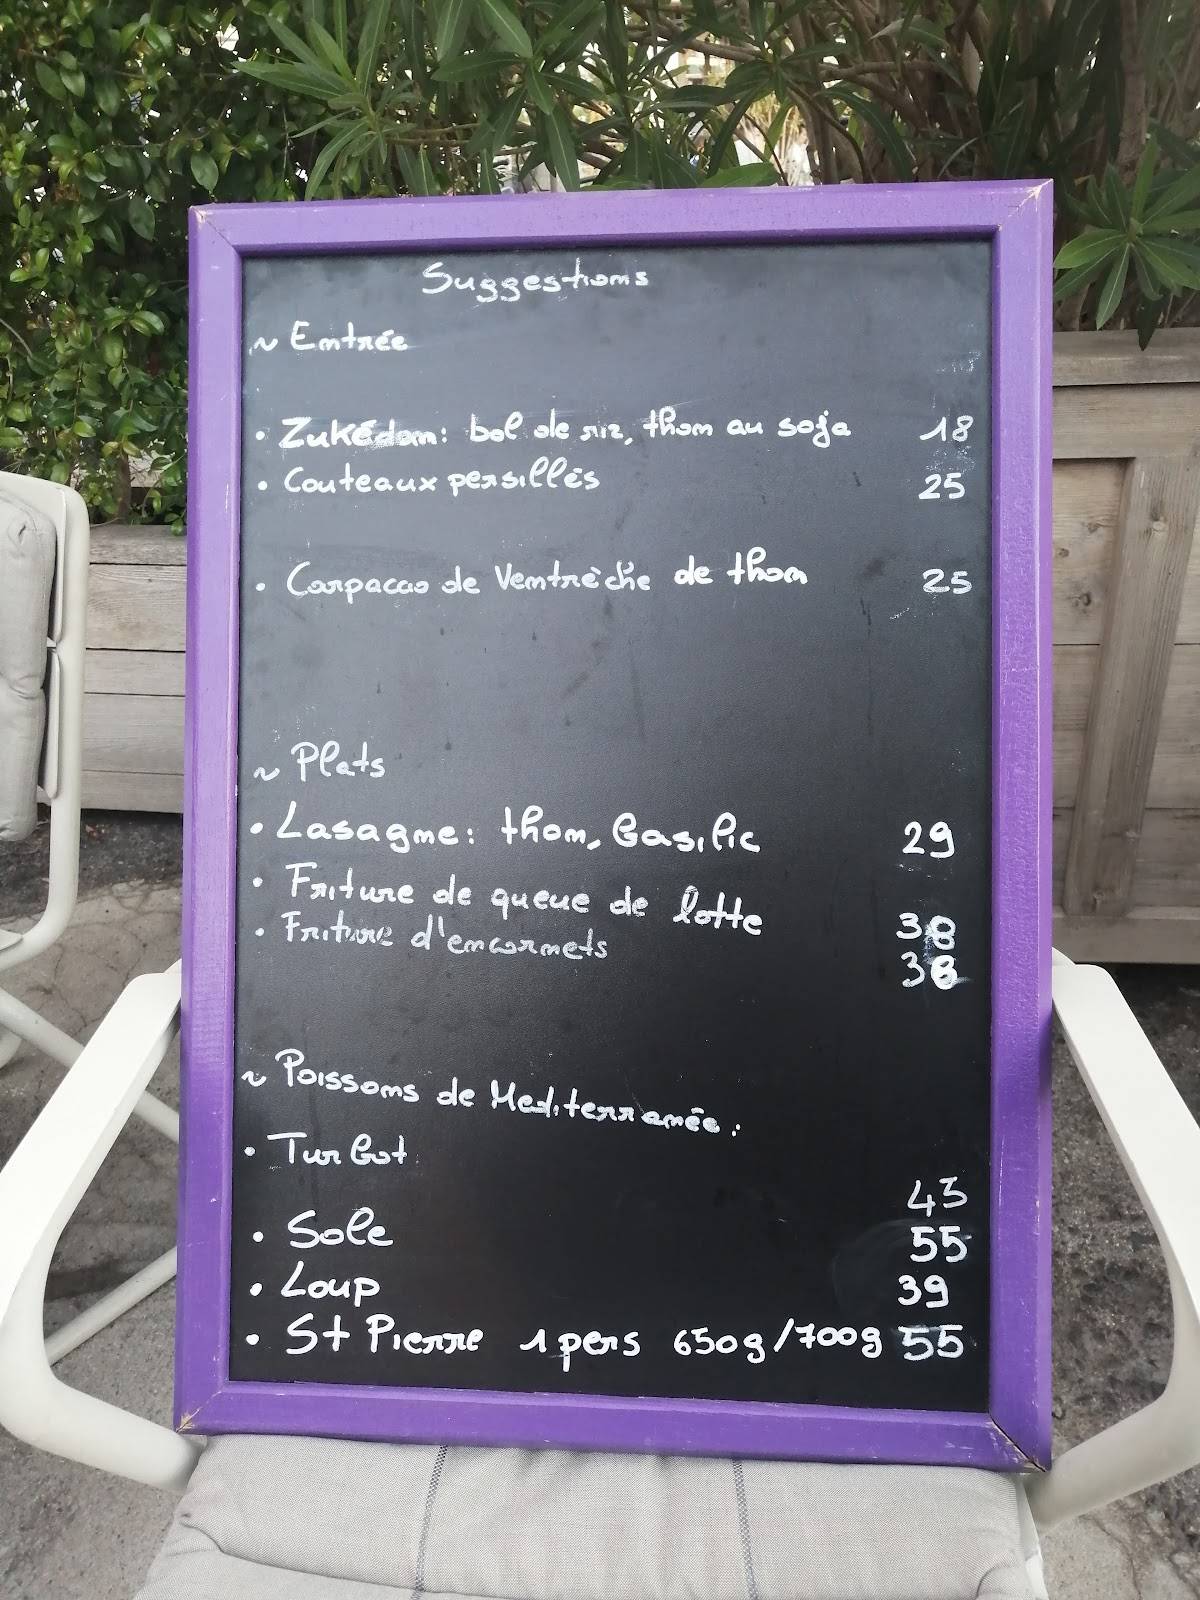 Suggestions
~ Entrée
• Zukédon: bol de riz, thon au soja 18
• Couteaux persillés 25
• Carpacao de Ventrèche de thon 25
~ Plats
• Lasagne: thon, basilic 29
• Friture de queue de lotte 38
• Friture d'encornets 38
~ Poissons de Mediterranée:
• Turbot 45
• Sole 55
• Loup 39
• St Pierre 1 pers 650g/700g 55